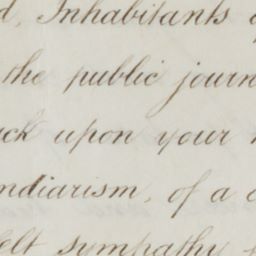 d, Inhabitants
the public journ
ck upon your
ndiarism, of a
felt sympathy